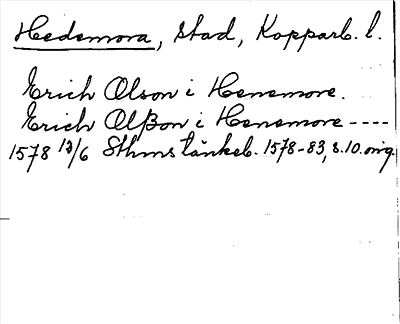 Hedemora, stad, Kopparb. l.
Erich Olson i Henemore.
Erich Olßon i Henemore ----
1578 13/6 Sthms tänkeb. 1578-83, s. 10. orig.